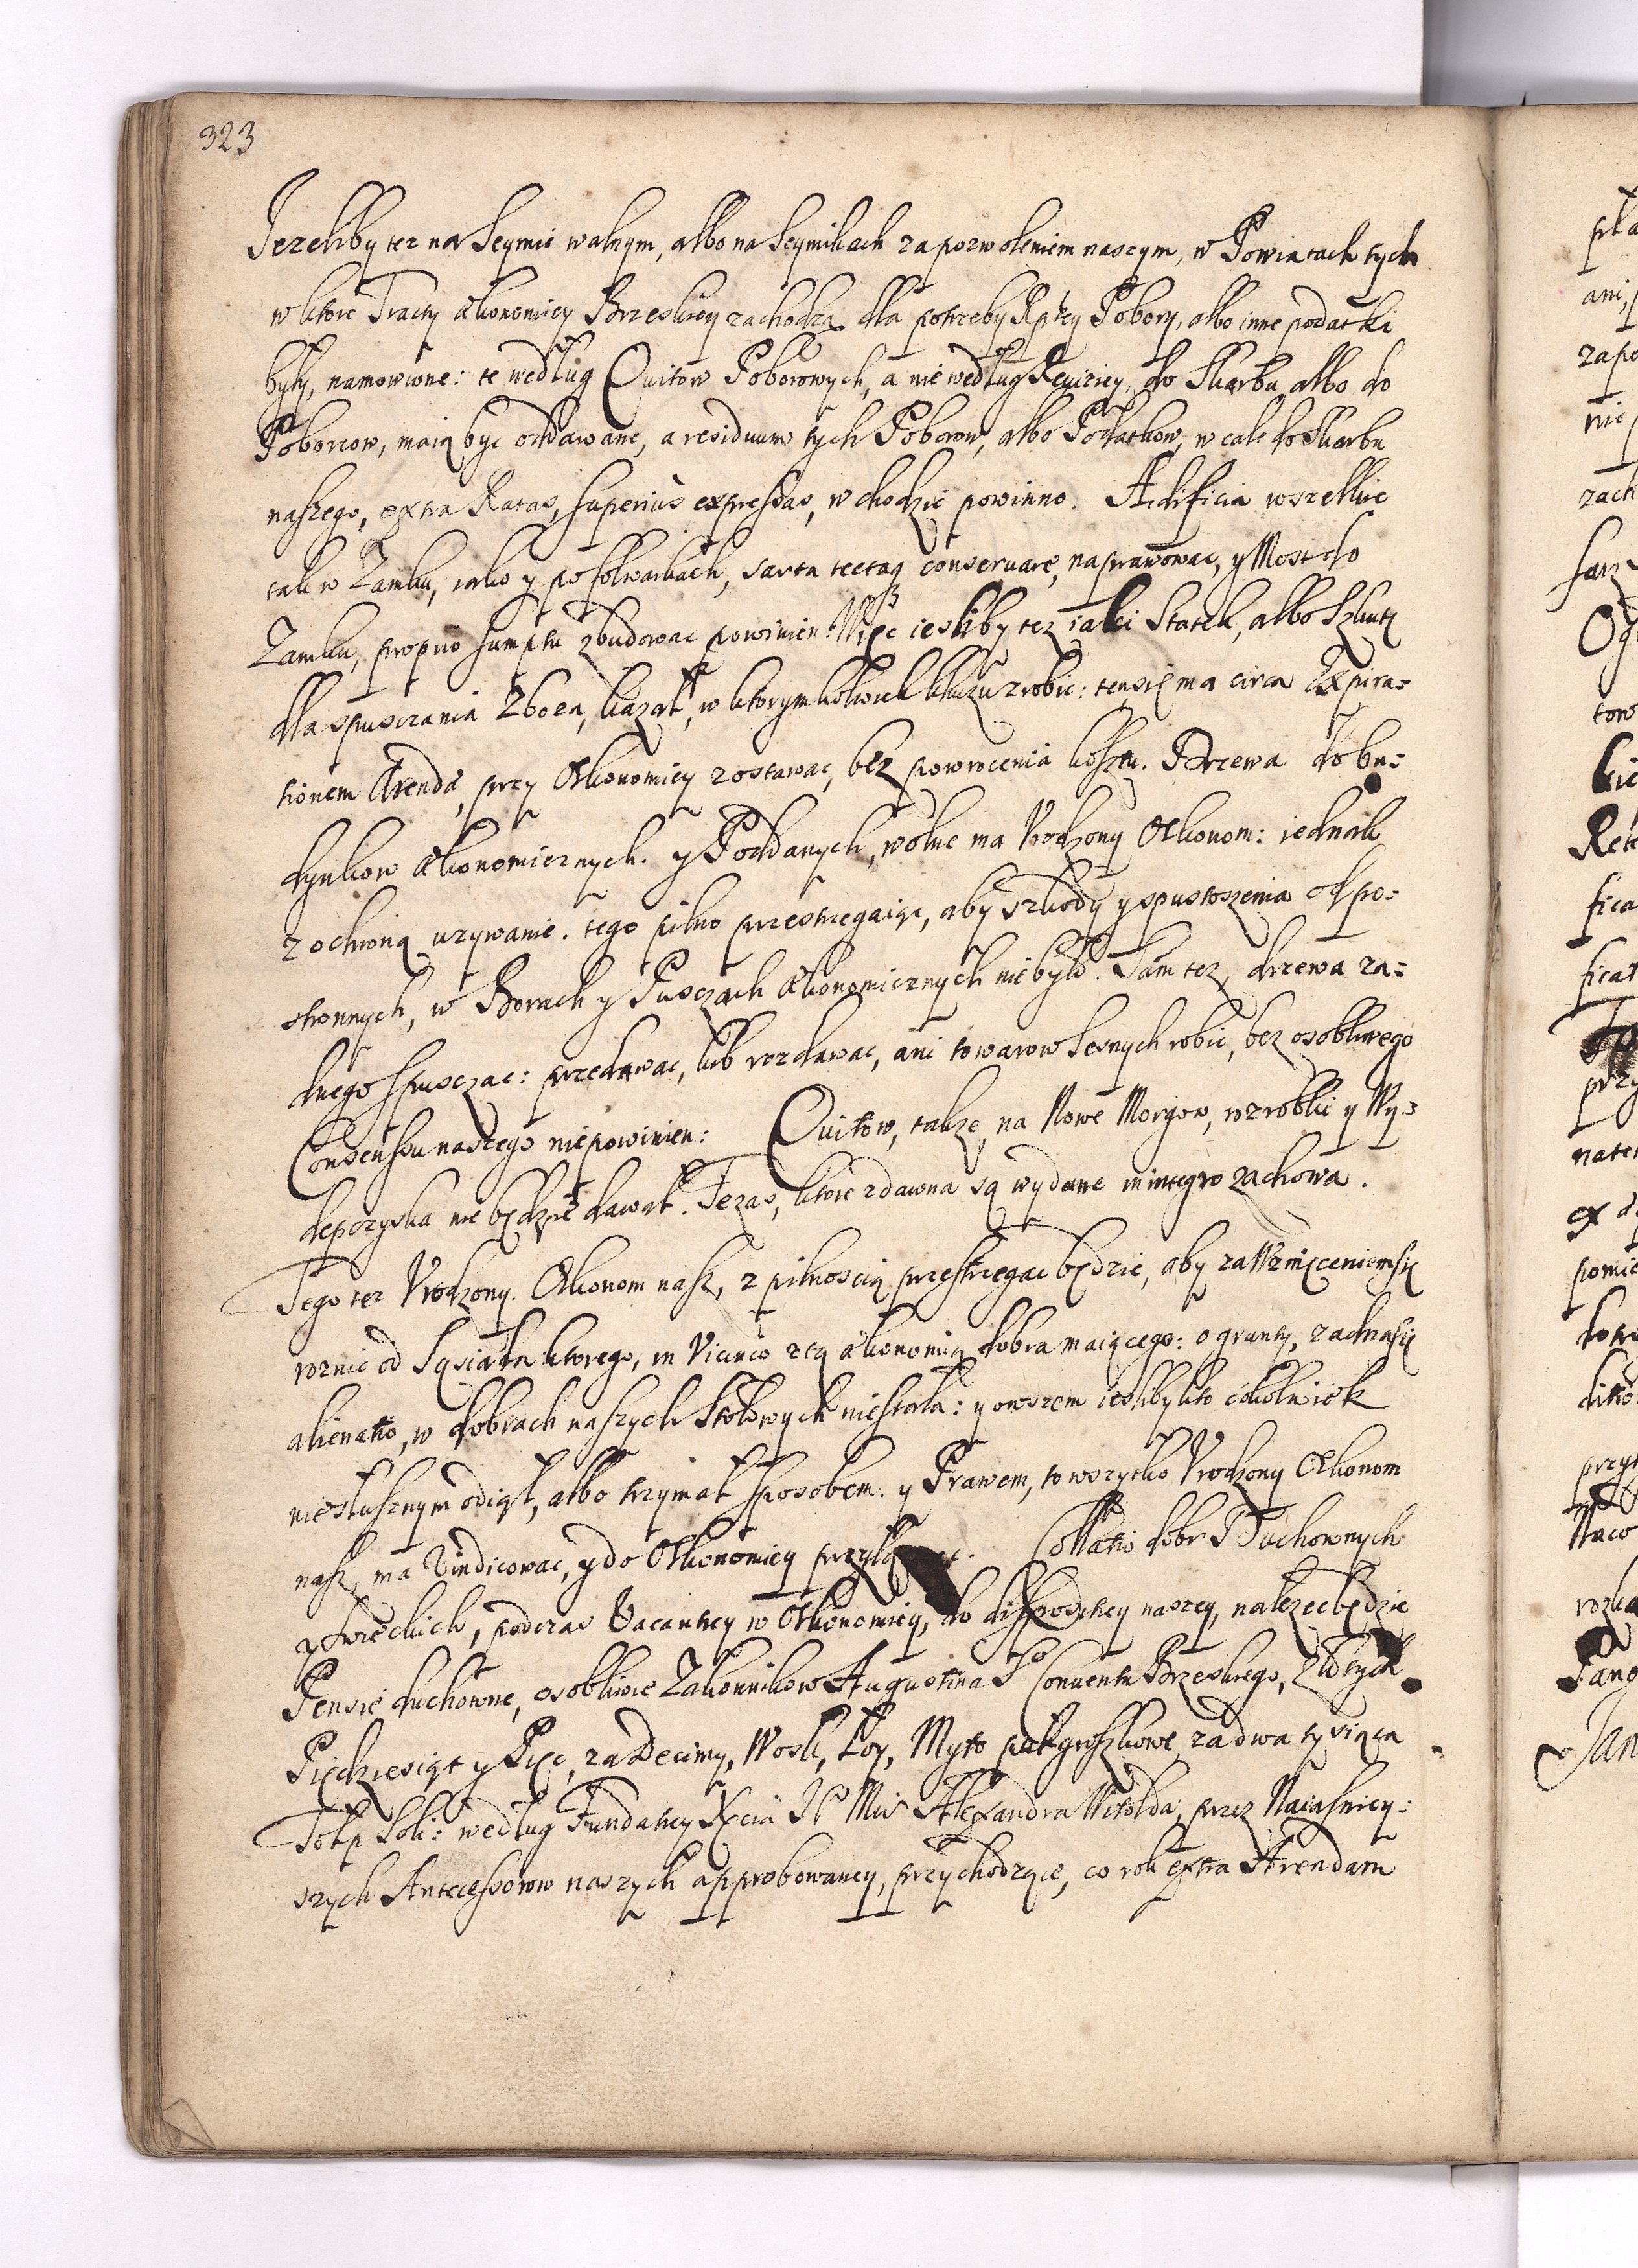 323
Jezeliby tez na Seymie walnym, albo na Seymikach za pozwoleniem naszym, w Powiatach tych
w ktore Tracty œkonomiey Brzeskiey zachodzą dla potrzeby Rptey Pobory, albo inne podatki
były, namowione: te według Quitow Poborowych, a nie według Rewiziey, do Skarbu albo do
Poborcow, maią byc oddawane, a residuum tych Poborow, albo Podatkow, w cale do Skarbu
naszego, extra Ratas, superius expressas, wchodzic powinno. Ædificia wszelkie
tak w Zamku, iako y po folwarkach, sarta tectaq conseruare, naprawowac, y Most do
Zamku, proprio sumptu zbudowac powinien. Więc iesliby tez iaki Statek, albo Szkutę
dla spusczania Zboza, kazał, w ktorymkolwiek kluczu zrobic: ten się ma circa Expira=
tionem Arendæ, przy Œkonomiey zostawac, bez powrocenia kosztu. Drzewa do bu=
dynkow œkonomicznych. y Poddanych, wolne ma Vrodzony Œkonom: iednak
z ochroną uzywanie. tego pilno przestrzegaiąc, aby szkody y spustoszenia od po=
stronnych, w Borach y Pusczach œkonomicznych nie było. Tam tez, drzewa za=
dnego spusczac: przedawac, lub rozdawac, ani towarow Lesnych robic, bez osobliwego
Consensu naszego niepowinien: Quitow, takze, na Nowe Morgow, rozrobki y Wy=
depczyska nie będzie dawał. Te zas, ktore zdawna są wydane in integro zachowa.
Tego tez Vrodzony. Œkonom nasz, z pilnoscią przestrzegac będzie, aby za Wznięceniem się
roznic od Sąsiada ktorego, in Vicinio z tą œkonomią dobra maiącego: o grunty, zadna się
alienatio, w dobrach naszych Stołowych nie stała: y owszem iesliby kto cokolwiek
niesłusznym odiął, albo trzymał sposobem. y Prawem, to wszytko Vrodzony Œkonom
nasz, ma Vindicowac, y do Œkonomiey Collatio dobr Duchownych
y swieckich, podczas Vacantiey w Œkonomiey, do dispositiey naszey, nalezec będzie
Pensie duchowne, osobliwie Zakonnikow Augustina S⁰ Conuentu Brzeskiego, Złotych
Pięcdziesiąt y Pięc, za Decimy, Wosk, Łoy, Myto pułgroszkowe za dwa tysiąca
Tołp Soli: według Fundatiey Xcia Je⁰ Mci Alexandra Witolda, przez Naiasniey=
szych Antecessorow naszych approbowaney, przychodzące, co rok extra Arendam